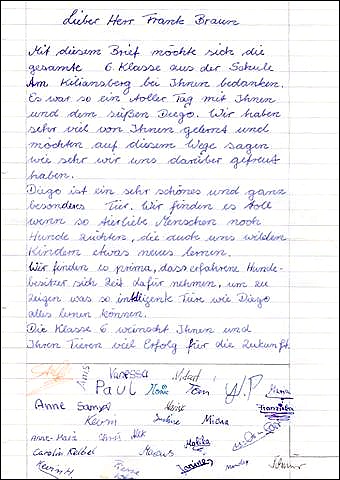 Lieber Herr Frank Braun
Mit diesem Brief möchte sich die
gesamte 6. Klasse aus der Schule
Am Kiliansberg bei Ihnen bedanken.
Es war so ein toller Tag mit Ihnen
und dem süßen Diego. Wir haben
sehr viel von Ihnen gelernt und
möchten auf diesem Wege sagen
wie sehr wir uns darüber gefreut
haben.
Diego ist ein sehr schönes und ganz
besonderes Tier. Wir finden es toll
wenn so tierliebe Menschen noch
Hunde züchten, die auch uns wilden
Kindern etwas neues lernen.
Wir finden es prima, dass erfahrene Hunde-
besitzer sich Zeit dafür nehmen, um zu
zeigen was so intelligente Tiere wie Diego
alles lernen können.
Die Klasse 6 wünscht Ihnen und
Ihren Tieren viel Erfolg für die Zukunft
Vanessa
Paul Tom
Anne Samsa Franziska
Kevin Micha
Anne-Marie Chris Malika
Carolin Keibel Marcus
Kevin H Janine